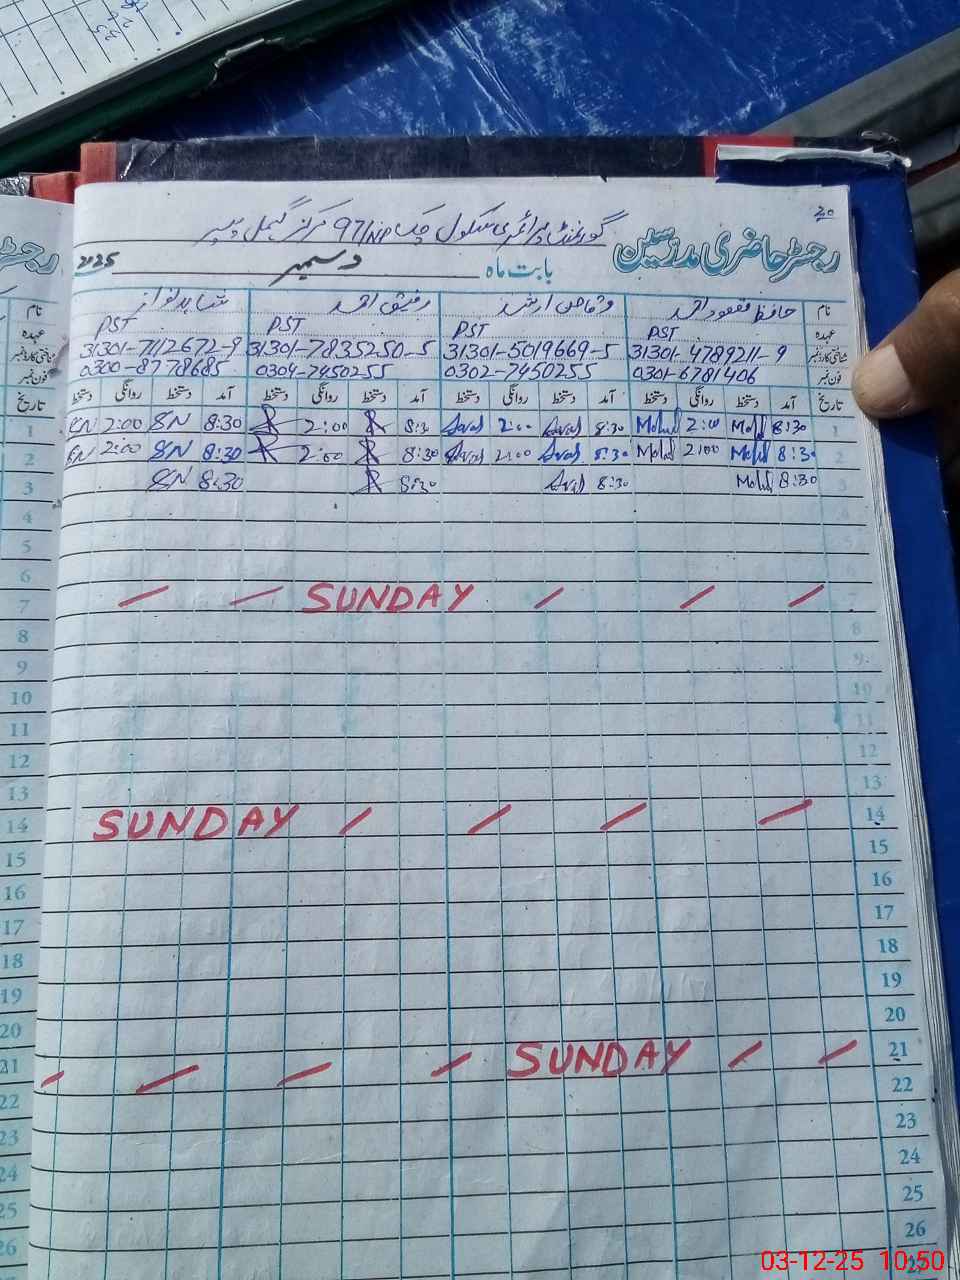 20
گورنمنٹ پرائمری سکول چک 97/NP مرکز
رجسٹر حاضری مدرسین
بابت ماہ دسمبر 2025
نام حافظ مقصود احمد وقاص ارشد رفیق احمد شاہد نواز
عہدہ PST PST PST PST
شناختی کارڈ نمبر 31301-4789211-9 31301-5019669-5 31301-7835250-5 31301-7112672-9
فون نمبر 0301-6781406 0302-7450255 0304-7450255 0300-8778685
تاریخ آمد دستخط روانگی دستخط آمد دستخط روانگی دستخط آمد دستخط روانگی دستخط آمد دستخط روانگی دستخط
1 8:30 2:00 8:30 2:00 8:30 2:00 8:30 SN 2:00 SN
2 8:30 2:00 8:30 2:00 8:30 2:00 8:30 SN 2:00 SN
3 8:30 8:30 8:30 8:30 SN
4
5
6
7 SUNDAY
8
9
10
11
12
13
14 SUNDAY
15
16
17
18
19
20
21 SUNDAY
22
23
24
25
26
27
03-12-25 10:50